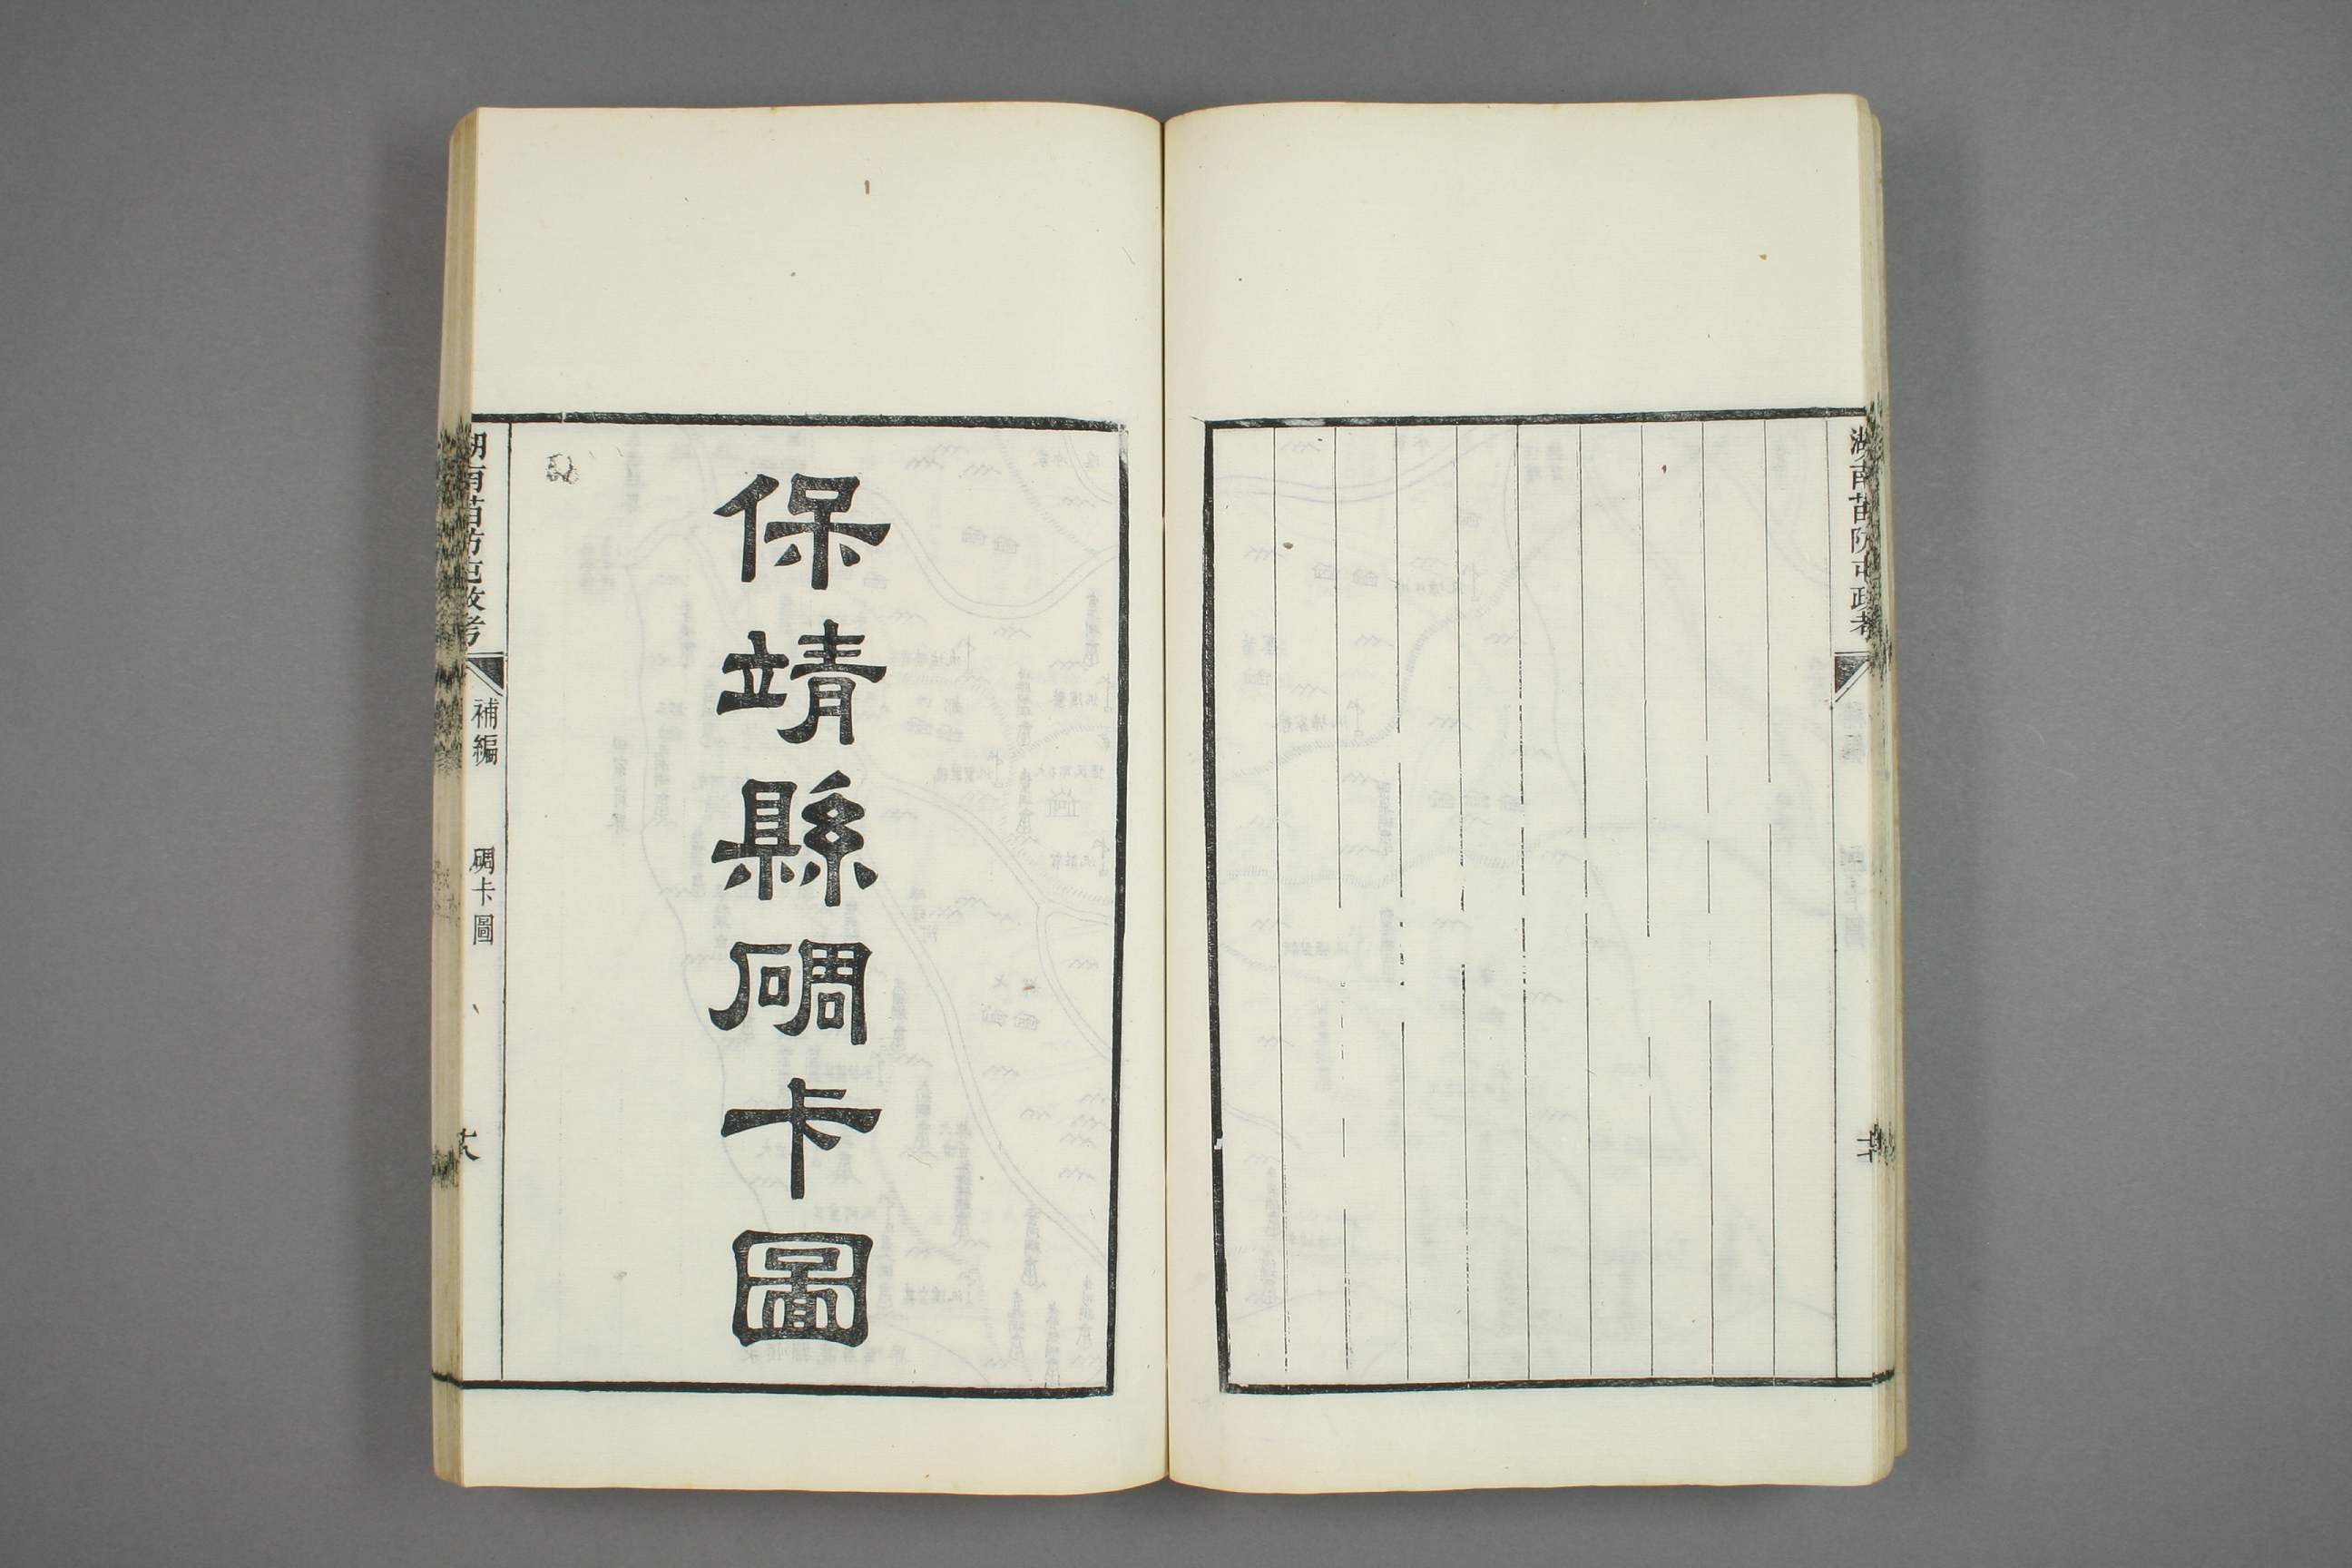 湖南苗防屯政考
保靖縣碉卡圖
湖南苗防屯政考
補編
碉卡圖